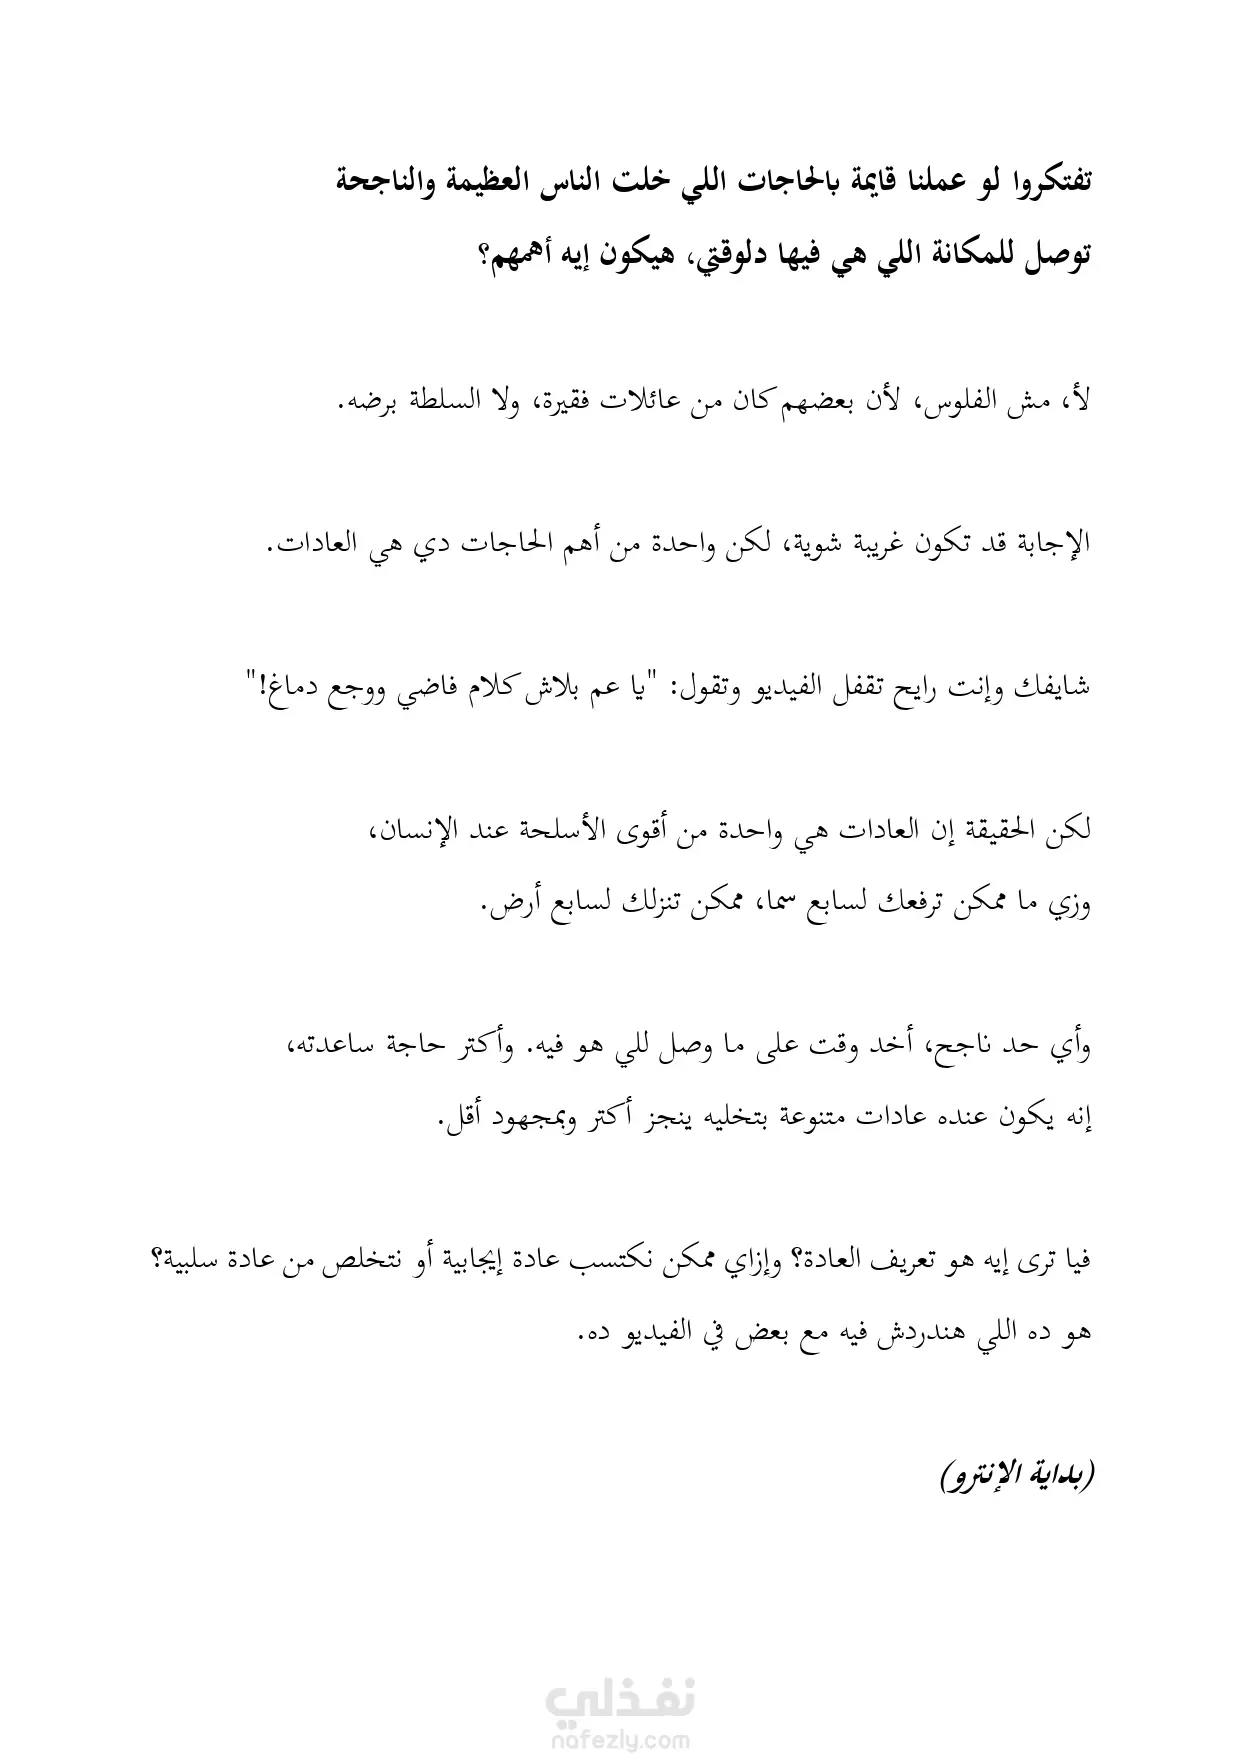 تفتكروا لو عملنا قايمة بالحاجات اللي خلت الناس العظيمة والناجحة
توصل للمكانة اللي هي فيها دلوقتي، هيكون إيه أهمهم؟
لأ، مش الفلوس، لأن بعضهم كان من عائلات فقيرة، ولا السلطة برضه.
الإجابة قد تكون غريبة شوية، لكن واحدة من أهم الحاجات دي هي العادات.
شايفك وإنت رايح تقفل الفيديو وتقول: "يا عم بلاش كلام فاضي ووجع دماغ!"
لكن الحقيقة إن العادات هي واحدة من أقوى الأسلحة عند الإنسان،
وزي ما ممكن ترفعك لسابع سما، ممكن تنزلك لسابع أرض.
وأي حد ناجح، أخد وقت على ما وصل للي هو فيه. وأكتر حاجة ساعدته،
إنه يكون عنده عادات متنوعة بتخليه ينجز أكتر وبمجهود أقل.
فيا ترى إيه هو تعريف العادة؟ وإزاي ممكن نكتسب عادة إيجابية أو نتخلص من عادة سلبية؟
هو ده اللي هندردش فيه مع بعض في الفيديو ده.
(بداية الإنترو)
نفذلي
nafezly.com